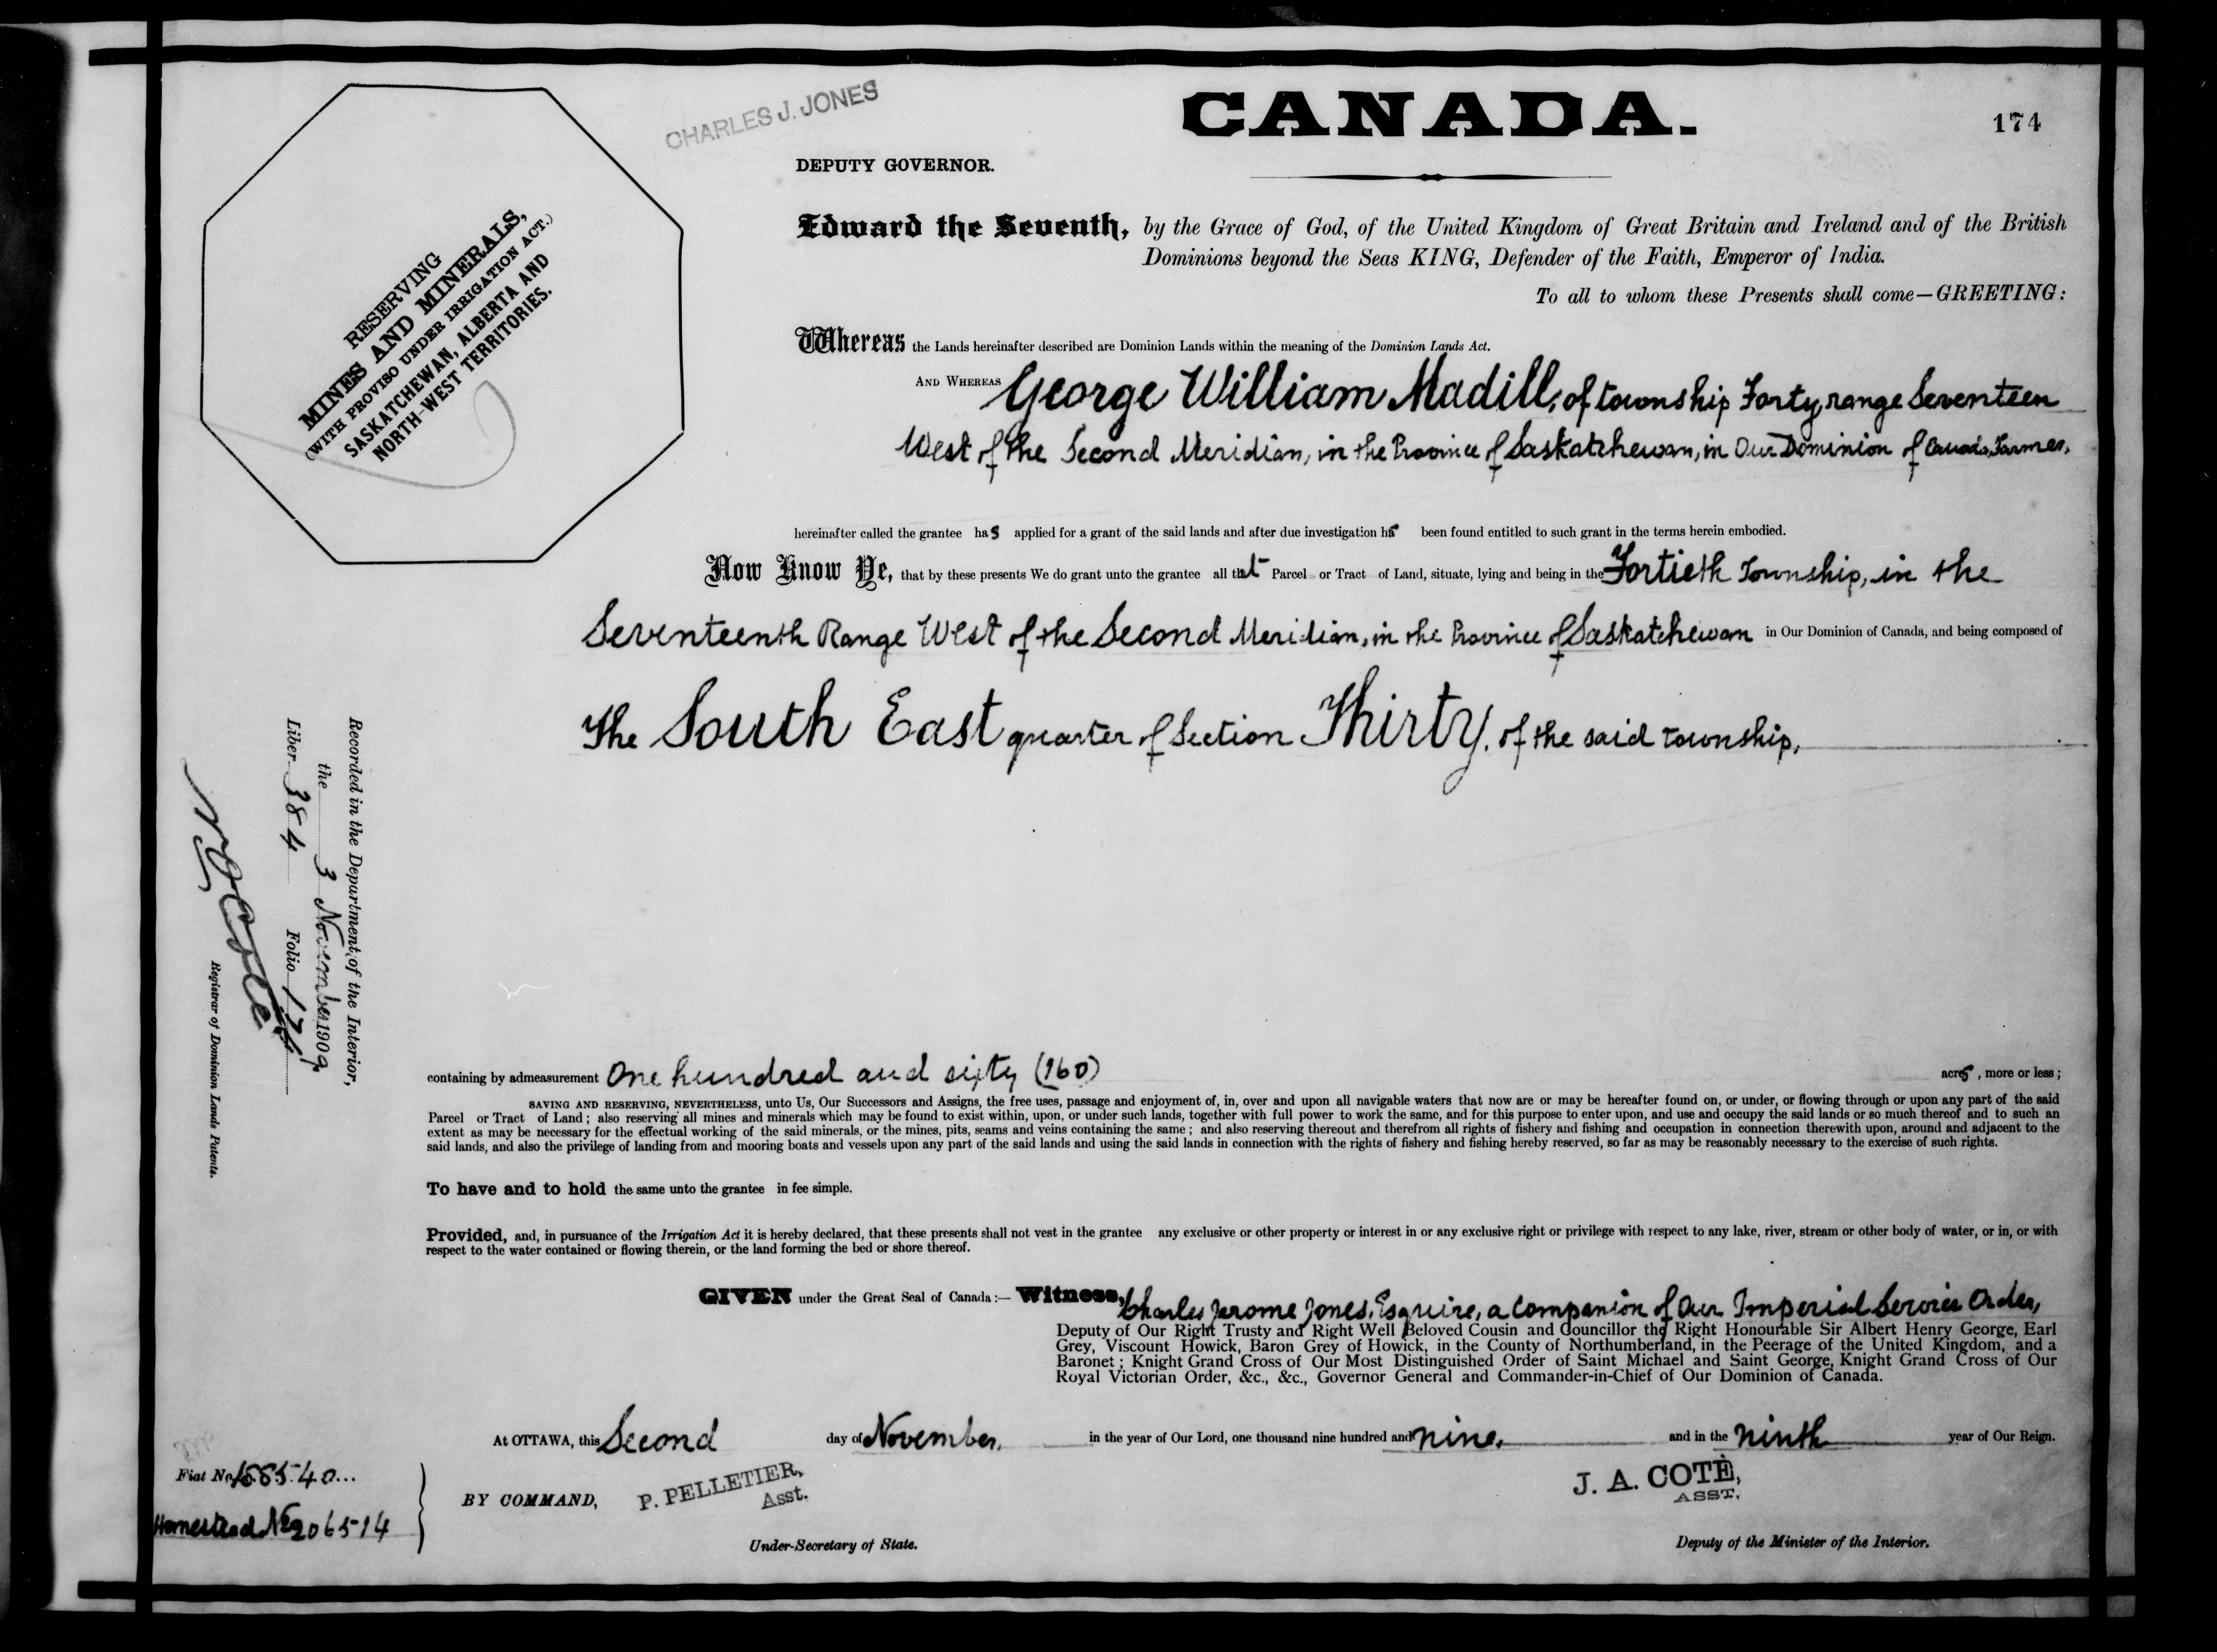 CHARLES J. JONES
CANADA.
174
DEPUTY GOVERNOR.
RESERVING
MINES AND MINERALS,
(WITH PROVISO UNDER IRRIGATION ACT.)
SASKATCHEWAN, ALBERTA AND
NORTH-WEST TERRITORIES.
Edward the Seventh, by the Grace of God, of the United Kingdom of Great Britain and Ireland and of the British
Dominions beyond the Seas KING, Defender of the Faith, Emperor of India.
To all to whom these Presents shall come—GREETING:
Whereas the Lands hereinafter described are Dominion Lands within the meaning of the Dominion Lands Act.
AND WHEREAS George William Madill, of township Forty, range Seventeen
West of the Second Meridian, in the Province of Saskatchewan, in Our Dominion of Canada, Farmer,
hereinafter called the grantee has applied for a grant of the said lands and after due investigation has been found entitled to such grant in the terms herein embodied.
Now Know Ye, that by these presents We do grant unto the grantee all that Parcel or Tract of Land, situate, lying and being in the Fortieth Township, in the
Seventeenth Range West of the Second Meridian, in the Province of Saskatchewan in Our Dominion of Canada, and being composed of
The South East quarter of Section Thirty, of the said township,
Recorded in the Department of the Interior,
the 3 November 1909
Liber 384 Folio 174
Registrar of Dominion Lands Patents.
containing by admeasurement One hundred and sixty (160) acres, more or less;
SAVING AND RESERVING, NEVERTHELESS, unto Us, Our Successors and Assigns, the free uses, passage and enjoyment of, in, over and upon all navigable waters that now are or may be hereafter found on, or under, or flowing through or upon any part of the said
Parcel or Tract of Land; also reserving all mines and minerals which may be found to exist within, upon, or under such lands, together with full power to work the same, and for this purpose to enter upon, and use and occupy the said lands or so much thereof and to such an
extent as may be necessary for the effectual working of the said minerals, or the mines, pits, seams and veins containing the same; and also reserving thereout and therefrom all rights of fishery and fishing and occupation in connection therewith upon, around and adjacent to the
said lands, and also the privilege of landing from and mooring boats and vessels upon any part of the said lands and using the said lands in connection with the rights of fishery and fishing hereby reserved, so far as may be reasonably necessary to the exercise of such rights.
To have and to hold the same unto the grantee in fee simple.
Provided, and, in pursuance of the Irrigation Act it is hereby declared, that these presents shall not vest in the grantee any exclusive or other property or interest in or any exclusive right or privilege with respect to any lake, river, stream or other body of water, or in, or with
respect to the water contained or flowing therein, or the land forming the bed or shore thereof.
GIVEN under the Great Seal of Canada:— Witness, Charles Jerome Jones, Esquire, a Companion of Our Imperial Service Order,
Deputy of Our Right Trusty and Right Well Beloved Cousin and Councillor the Right Honourable Sir Albert Henry George, Earl
Grey, Viscount Howick, Baron Grey of Howick, in the County of Northumberland, in the Peerage of the United Kingdom, and a
Baronet; Knight Grand Cross of Our Most Distinguished Order of Saint Michael and Saint George, Knight Grand Cross of Our
Royal Victorian Order, &c., &c., Governor General and Commander-in-Chief of Our Dominion of Canada.
At OTTAWA, this Second day of November, in the year of Our Lord, one thousand nine hundred and nine, and in the ninth year of Our Reign.
Fiat No. 188540...
Homestead No 206514
BY COMMAND,
P. PELLETIER,
Asst.
Under-Secretary of State.
J. A. COTÉ,
ASST.
Deputy of the Minister of the Interior.